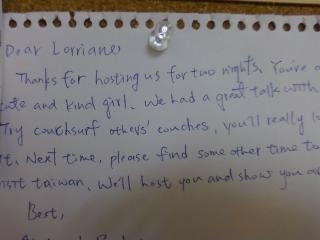 Dear Lorriane,
Thanks for hosting us for two nights. You're a
cute and kind girl. We had a great talk with
Try couchsurf others' couches, you'll really
it. Next time, please find some other time to
visit taiwan, We'll host you and show you
Best,